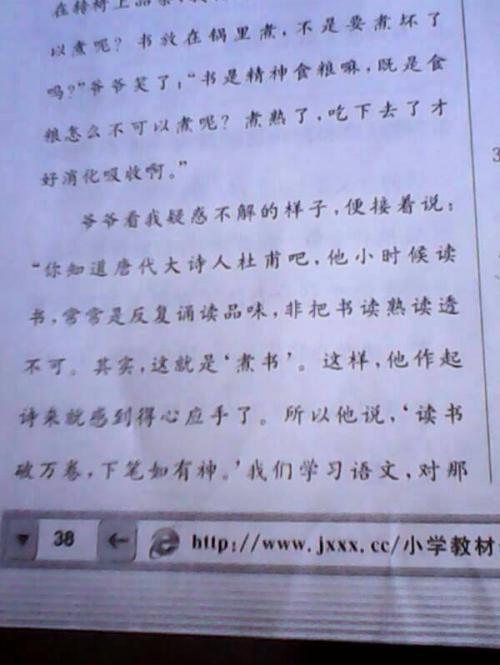 在椅上品茶，
以煮呢？书放在锅里煮，不是要煮坏了
吗？”爷爷笑了：“书是精神食粮嘛，既是食
粮怎么不可以煮呢？煮熟了，吃下去了才
好消化吸收啊。”
爷爷看我疑惑不解的样子，便接着说：
“你知道唐代大诗人杜甫吧，他小时候读
书，常常是反复诵读品味，非把书读熟读透
不可。其实，这就是‘煮书’。这样，他作起
诗来就感到得心应手了。所以他说，‘读书
破万卷，下笔如有神。’我们学习语文，对那
38 http://www.jxxx.cc/小学教材
3